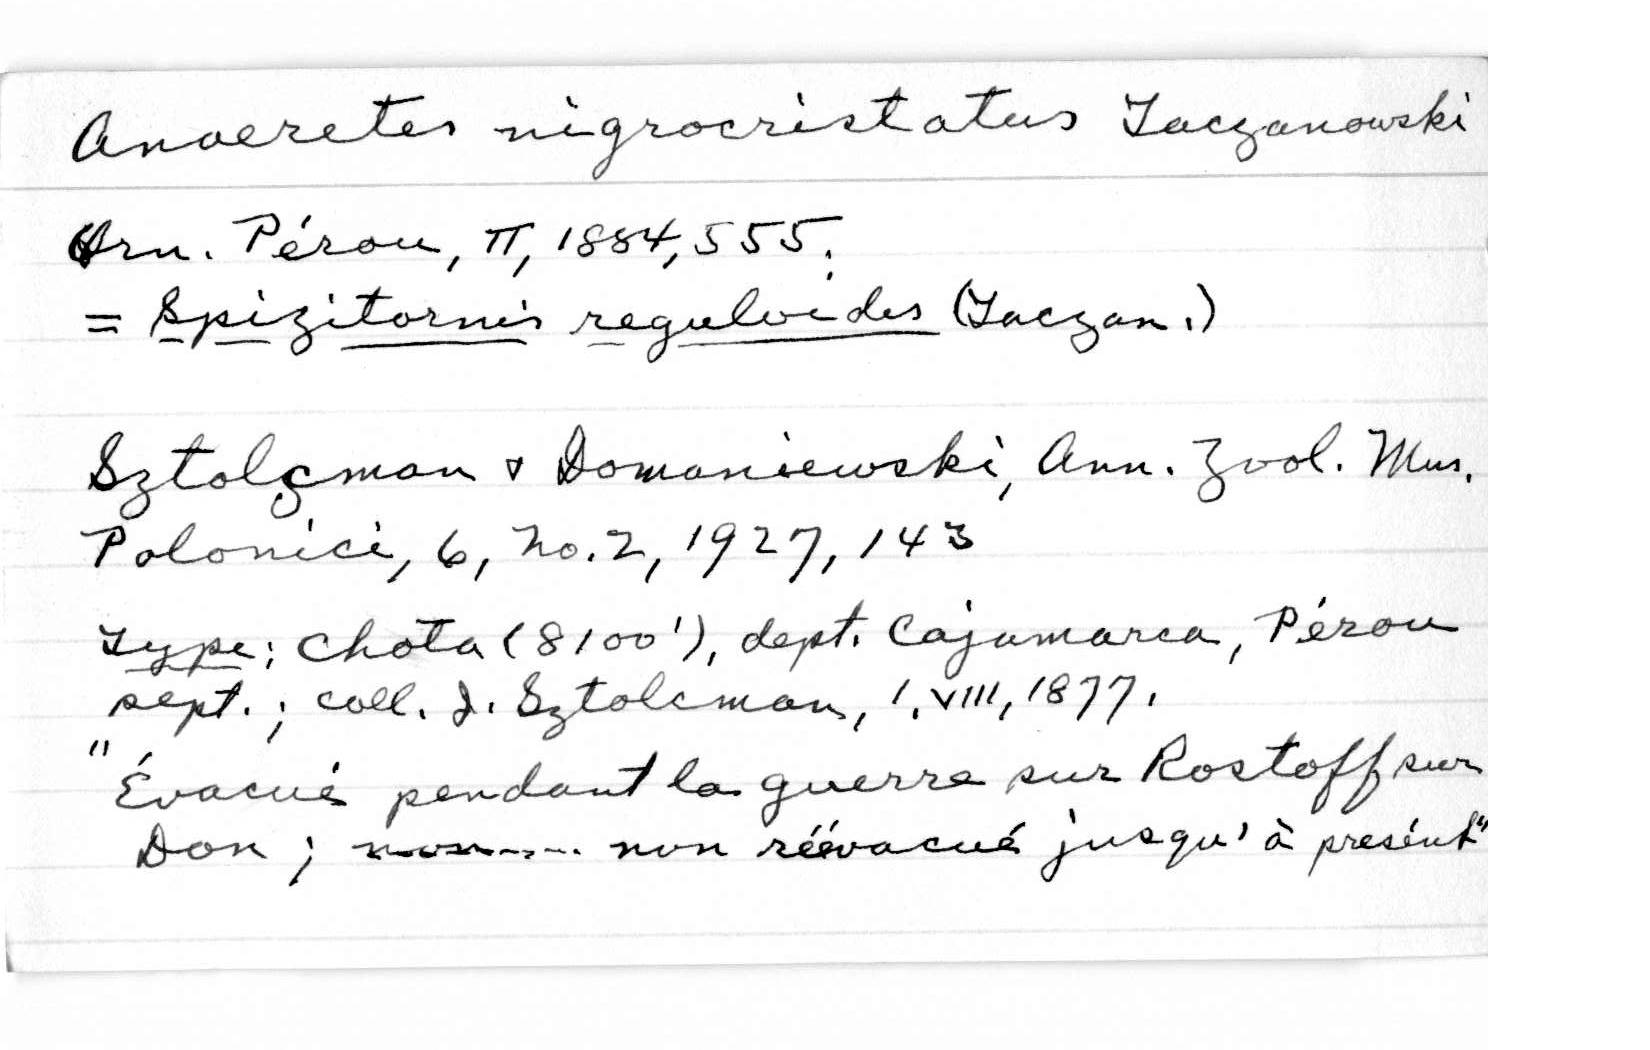 Anaeretes nigrocristatus Taczanowski
Orn. Pérou, II, 1884, 555.
= Spizitornis reguloides (Taczan.)
Sztolcman & Domaniewski, Ann. Zool. Mus.
Polonici, 6, No. 2, 1927, 143
Type: Chota (8100'), dept. Cajamarca, Pérou
sept.; coll. J. Sztolcman, 1.VIII, 1877.
"Évacué pendant la guerre sur Rostoff sur
Don; non réévacué jusqu'à présent"